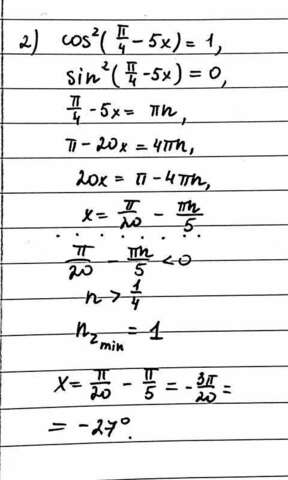 2) cos²(π/4 − 5x) = 1,
sin²(π/4 − 5x) = 0,
π/4 − 5x = πn,
π − 20x = 4πn,
20x = π − 4πn,
x = π/20 − πn/5
π/20 − πn/5 < 0
n > 1/4
n₂ min = 1
x = π/20 − π/5 = −3π/20 =
= −27°.